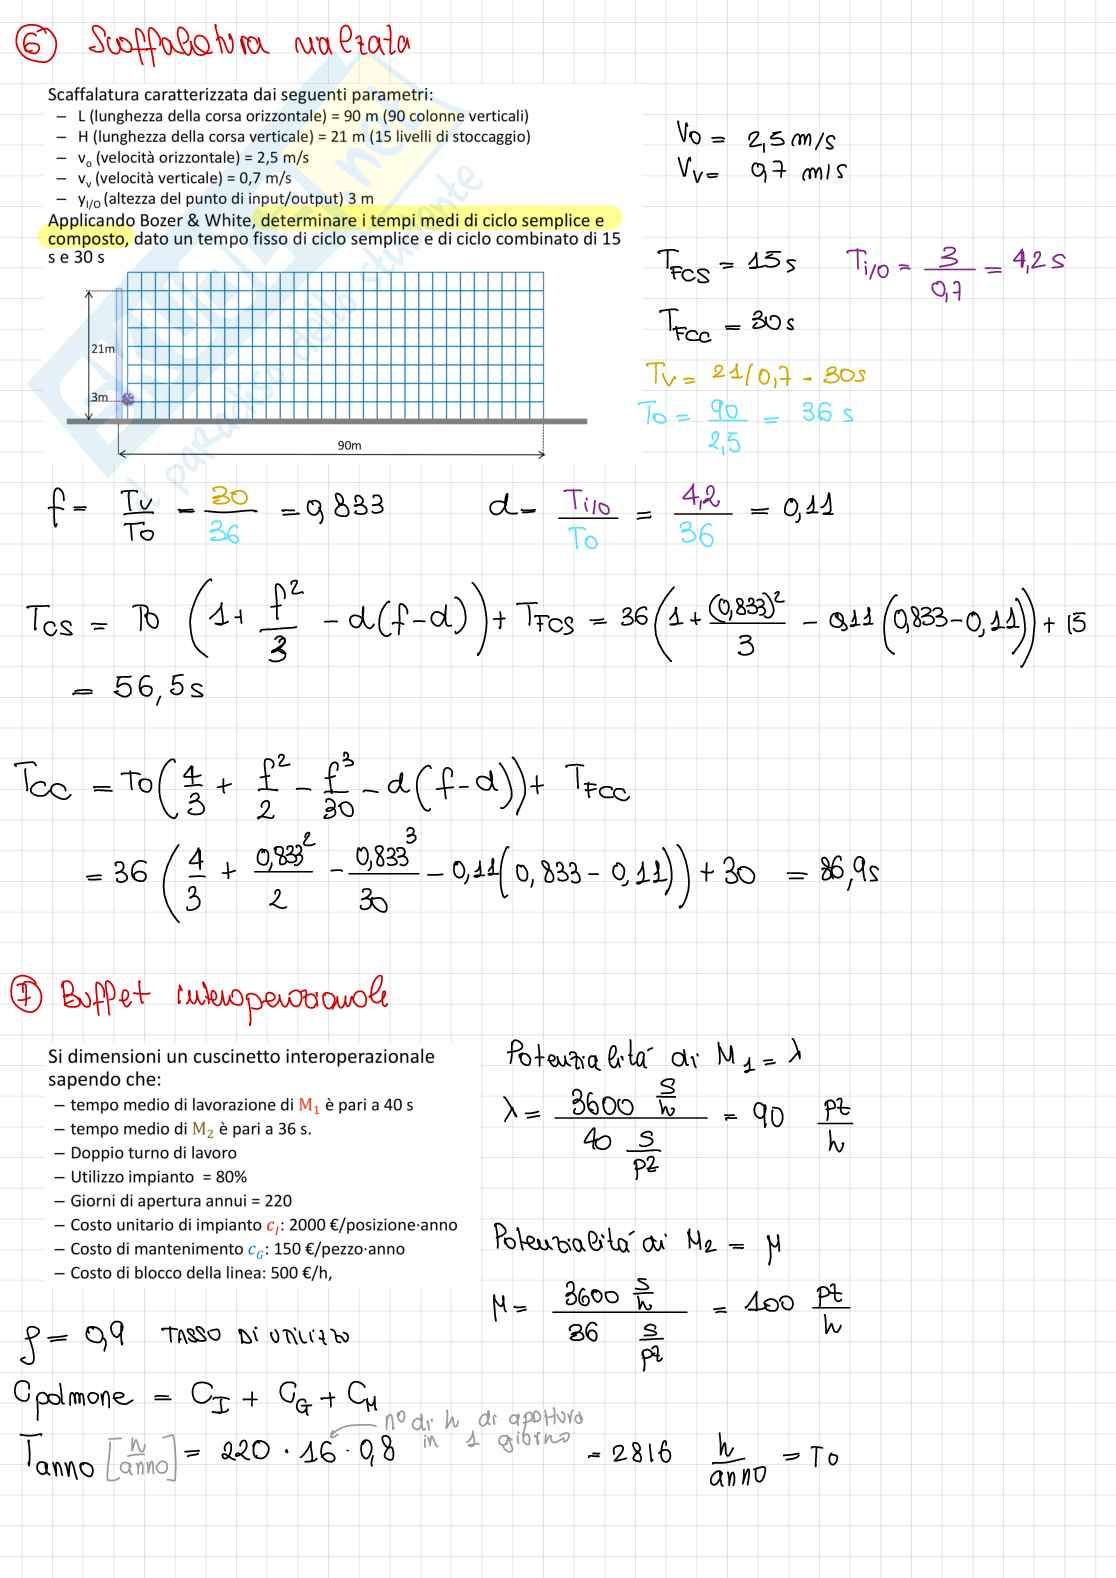 ⑥ Scaffalatura rialzata
Scaffalatura caratterizzata dai seguenti parametri:
– L (lunghezza della corsa orizzontale) = 90 m (90 colonne verticali)
– H (lunghezza della corsa verticale) = 21 m (15 livelli di stoccaggio)
– vo (velocità orizzontale) = 2,5 m/s
– vv (velocità verticale) = 0,7 m/s
– yI/O (altezza del punto di input/output) 3 m
Applicando Bozer & White, determinare i tempi medi di ciclo semplice e
composto, dato un tempo fisso di ciclo semplice e di ciclo combinato di 15
s e 30 s
Vo = 2,5 m/s
Vv = 0,7 m/s
TFCS = 15 s Ti/o = 3/0,7 = 4,2 s
TFCC = 30 s
Tv = 21/0,7 = 30s
To = 90/2,5 = 36 s
21m
3m
90m
il paradiso dello studente
f = Tv/To = 30/36 = 0,833 d = Ti/o/To = 4,2/36 = 0,11
TCS = To (1 + f²/3 - d(f-d)) + TFCS = 36 (1 + (0,833)²/3 - 0,11 (0,833 - 0,11)) + 15
= 56,5 s
TCC = To (4/3 + f²/2 - f³/30 - d(f-d)) + TFCC
= 36 (4/3 + 0,833²/2 - 0,833³/30 - 0,11(0,833 - 0,11)) + 30 = 86,9s
⑦ Buffet interoperazionale
Si dimensioni un cuscinetto interoperazionale
sapendo che:
– tempo medio di lavorazione di M1 è pari a 40 s
– tempo medio di M2 è pari a 36 s.
– Doppio turno di lavoro
– Utilizzo impianto = 80%
– Giorni di apertura annui = 220
– Costo unitario di impianto cI: 2000 €/posizione·anno
– Costo di mantenimento cG: 150 €/pezzo·anno
– Costo di blocco della linea: 500 €/h,
Potenzialità di M1 = λ
λ = 3600 s/h / 40 s/pz = 90 pz/h
Potenzialità di M2 = μ
μ = 3600 s/h / 36 s/pz = 100 pz/h
ρ = 0,9 TASSO DI UTILIZZO
Cpolmone = CI + CG + CM
n° di h di apertura
in 1 giorno
Tanno [h/anno] = 220 · 16 · 0,8 = 2816 h/anno = To